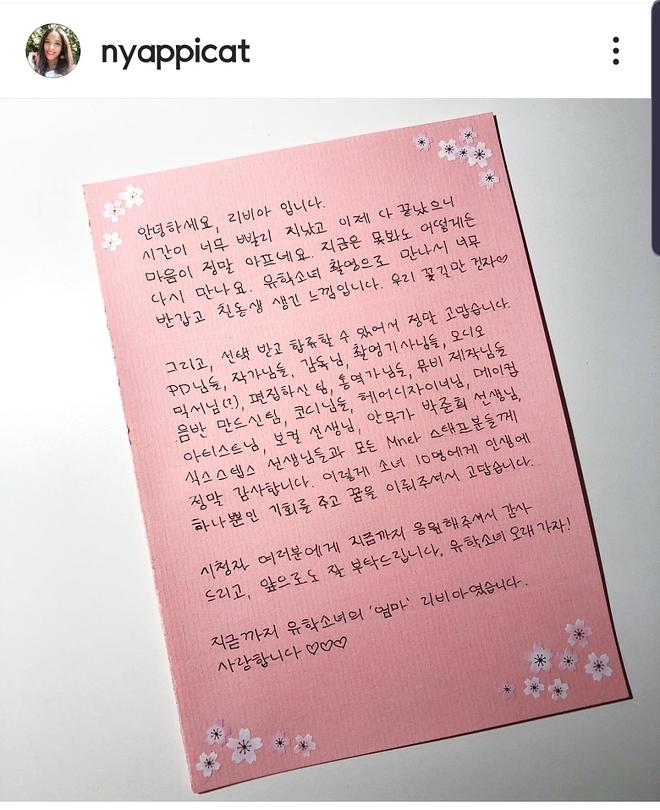 nyappicat
안녕하세요, 리비아 입니다.
시간이 너무 빨리 지났고 이제 다 끝났으니
마음이 정말 아프네요. 지금은 못봐도 어떻게든
다시 만나요. 유학소녀 촬영으로 만나서 너무
반갑고 친동생 생긴 느낌입니다. 우리 꽃길만 걷자♡
그리고, 선택 받고 합류할 수 있어서 정말 고맙습니다.
PD님들, 작가님들, 감독님, 촬영기사님들, 오디오
믹서님(?), 편집하신 팀, 통역가님들, 뮤비 제작님들
음반 만드신팀, 코디님들, 헤어디자이너님, 메이컵
아티스트님, 보컬 선생님, 안무가 박준희 선생님,
식스스텝스 선생님들과 모든 Mnet 스태프분들께
정말 감사합니다. 이렇게 소녀 10명에게 인생에
하나뿐인 기회를 주고 꿈을 이뤄주셔서 고맙습니다.
시청자 여러분에게 지금까지 응원해주셔서 감사
드리고, 앞으로도 잘 부탁드립니다. 유학소녀 오래가자!
지금까지 유학소녀의 '엄마' 리비아였습니다.
사랑합니다 ♡♡♡